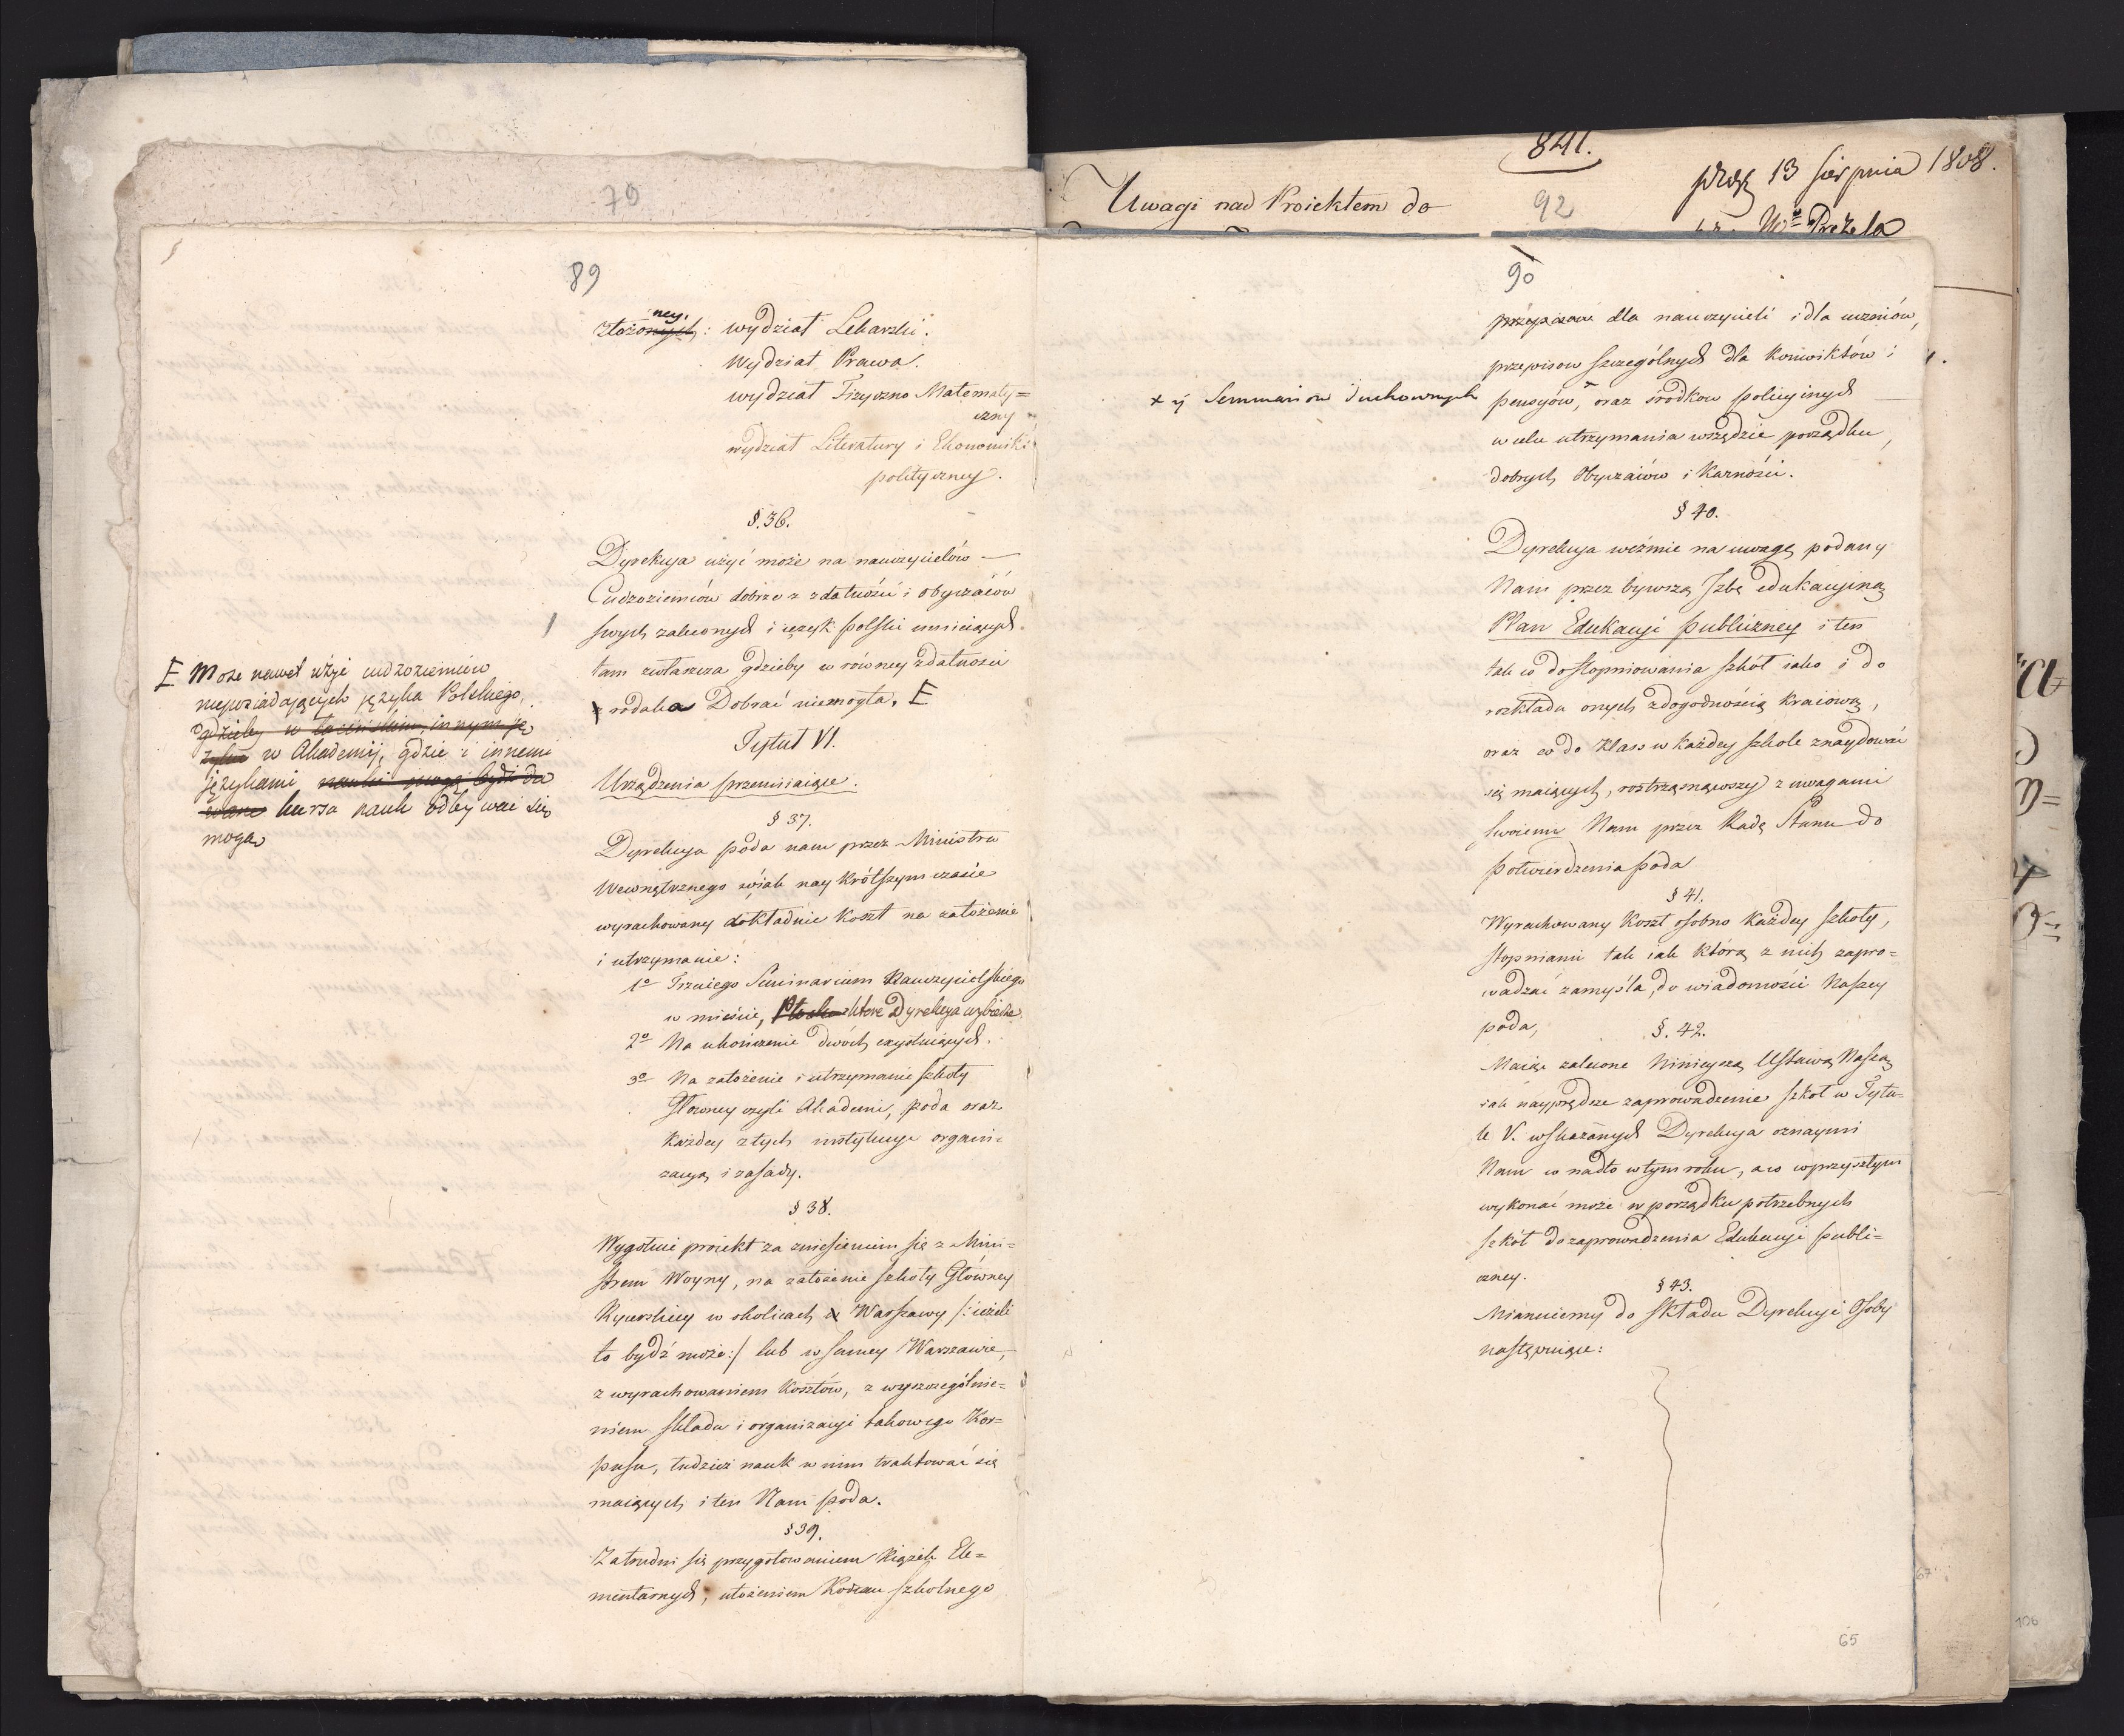 79
841.
92
13 sierpnia 1808.
Uwagi nad Proiektem do
89
ney.
złożonych: wydział Lekarski.
wydział Prawa.
wydział Fizyczno Matematy=
czny
wydział Literatury i Ekonomiki
polityczney.
§. 36.
Dyrekcya użyć może na nauczycielów —
Cudzoziemców dobrze z zdatności i obyczaiów
swych zaleconych i ięzyk polski umieiących
tam zwłaszcza gdzieby w równey zdatności
rodaka Dobrać niemogła. E
E Może nawet użyć cudzoziemców
nieposiadających języka Polskiego,
gdzieby w łacińskim, innym ję
zyku w Akademij, gdzie i innemi
językami nauki mogą bydź da
wane kursa nauk odbywać się
mogą
Tytuł VI.
Urządzenia przemiiaiące.
§ 37.
Dyrekcya poda nam przez Ministra
Wewnętrznego w iak nay krótszym czasie
wyrachowany dokładnie koszt na założenie
i utrzymanie:
1o Trzeciego Seminarium Nauczycielskiego
w mieście, które Dyrekcya wybierze
2o Na ukończenie dwóch exystuiących.
3o Na założenie i utrzymanie szkoły
Głowney czyli Akademi, poda oraz
każdey z tych instytucyi organi=
zacyą i zasady.
§ 38.
Wygotuie proiekt za zniesieniem się z Mini=
strem Woyny, na założenie szkoły Główney
Rycerskiey w okolicach Warszawy /: ieżeli
to bydź może :/ lub w samey Warszawie,
z wyrachowaniem kosztów, z wyszczególnie=
niem składu i organizacyi takowego Kor=
pusu, tudzież nauk w nim traktować się
maiących i ten Nam poda.
§ 39.
Zatrudni się przygotowaniem Książek Ele=
mentarnych, ułożeniem Kodexu szkolnego
90
przepisów dla nauczycieli i dla uczniów,
przepisow szczególnych dla konwiktów i
x y Seminariow Duchownych
pensyów, oraz środkow policyinych
w celu utrzymania wszędzie porządku,
dobrych obyczaiów i karności.
§ 40.
Dyrekcya weźmie na uwagę podany
Nam przez bywszą Izbę edukacyiną
Plan Edukacyi publiczney i ten
tak co do stopniowania szkół iako i do
rozkładu onych z dogodnością kraiową,
oraz co do Klass w każdey szkole znaydować
się maiących, roztrząsnąwszy z uwagami
swoiemi Nam przez Radę Stanu do
potwierdzenia poda
§ 41.
Wyrachowany Koszt osobno każdey szkoły,
stopniami tak iak którą z nich zapro=
wadzać zamyśla, do wiadomości Naszey
poda,
§. 42.
Maiąc zalecone Ninieyszą Ustawą Naszą
iak nayprędsze zaprowadzenie szkoł w Tytu=
le V. wskazanych Dyrekcya oznaymi
Nam co nadto w tym roku, a co w przyszłym
wykonać może w porządku potrzebnych
szkół do zaprowadzenia Edukacyi publi=
czney.
§ 43.
Mianuiemy do składu Dyrekcyi Osoby
następuiące:
65
67
106